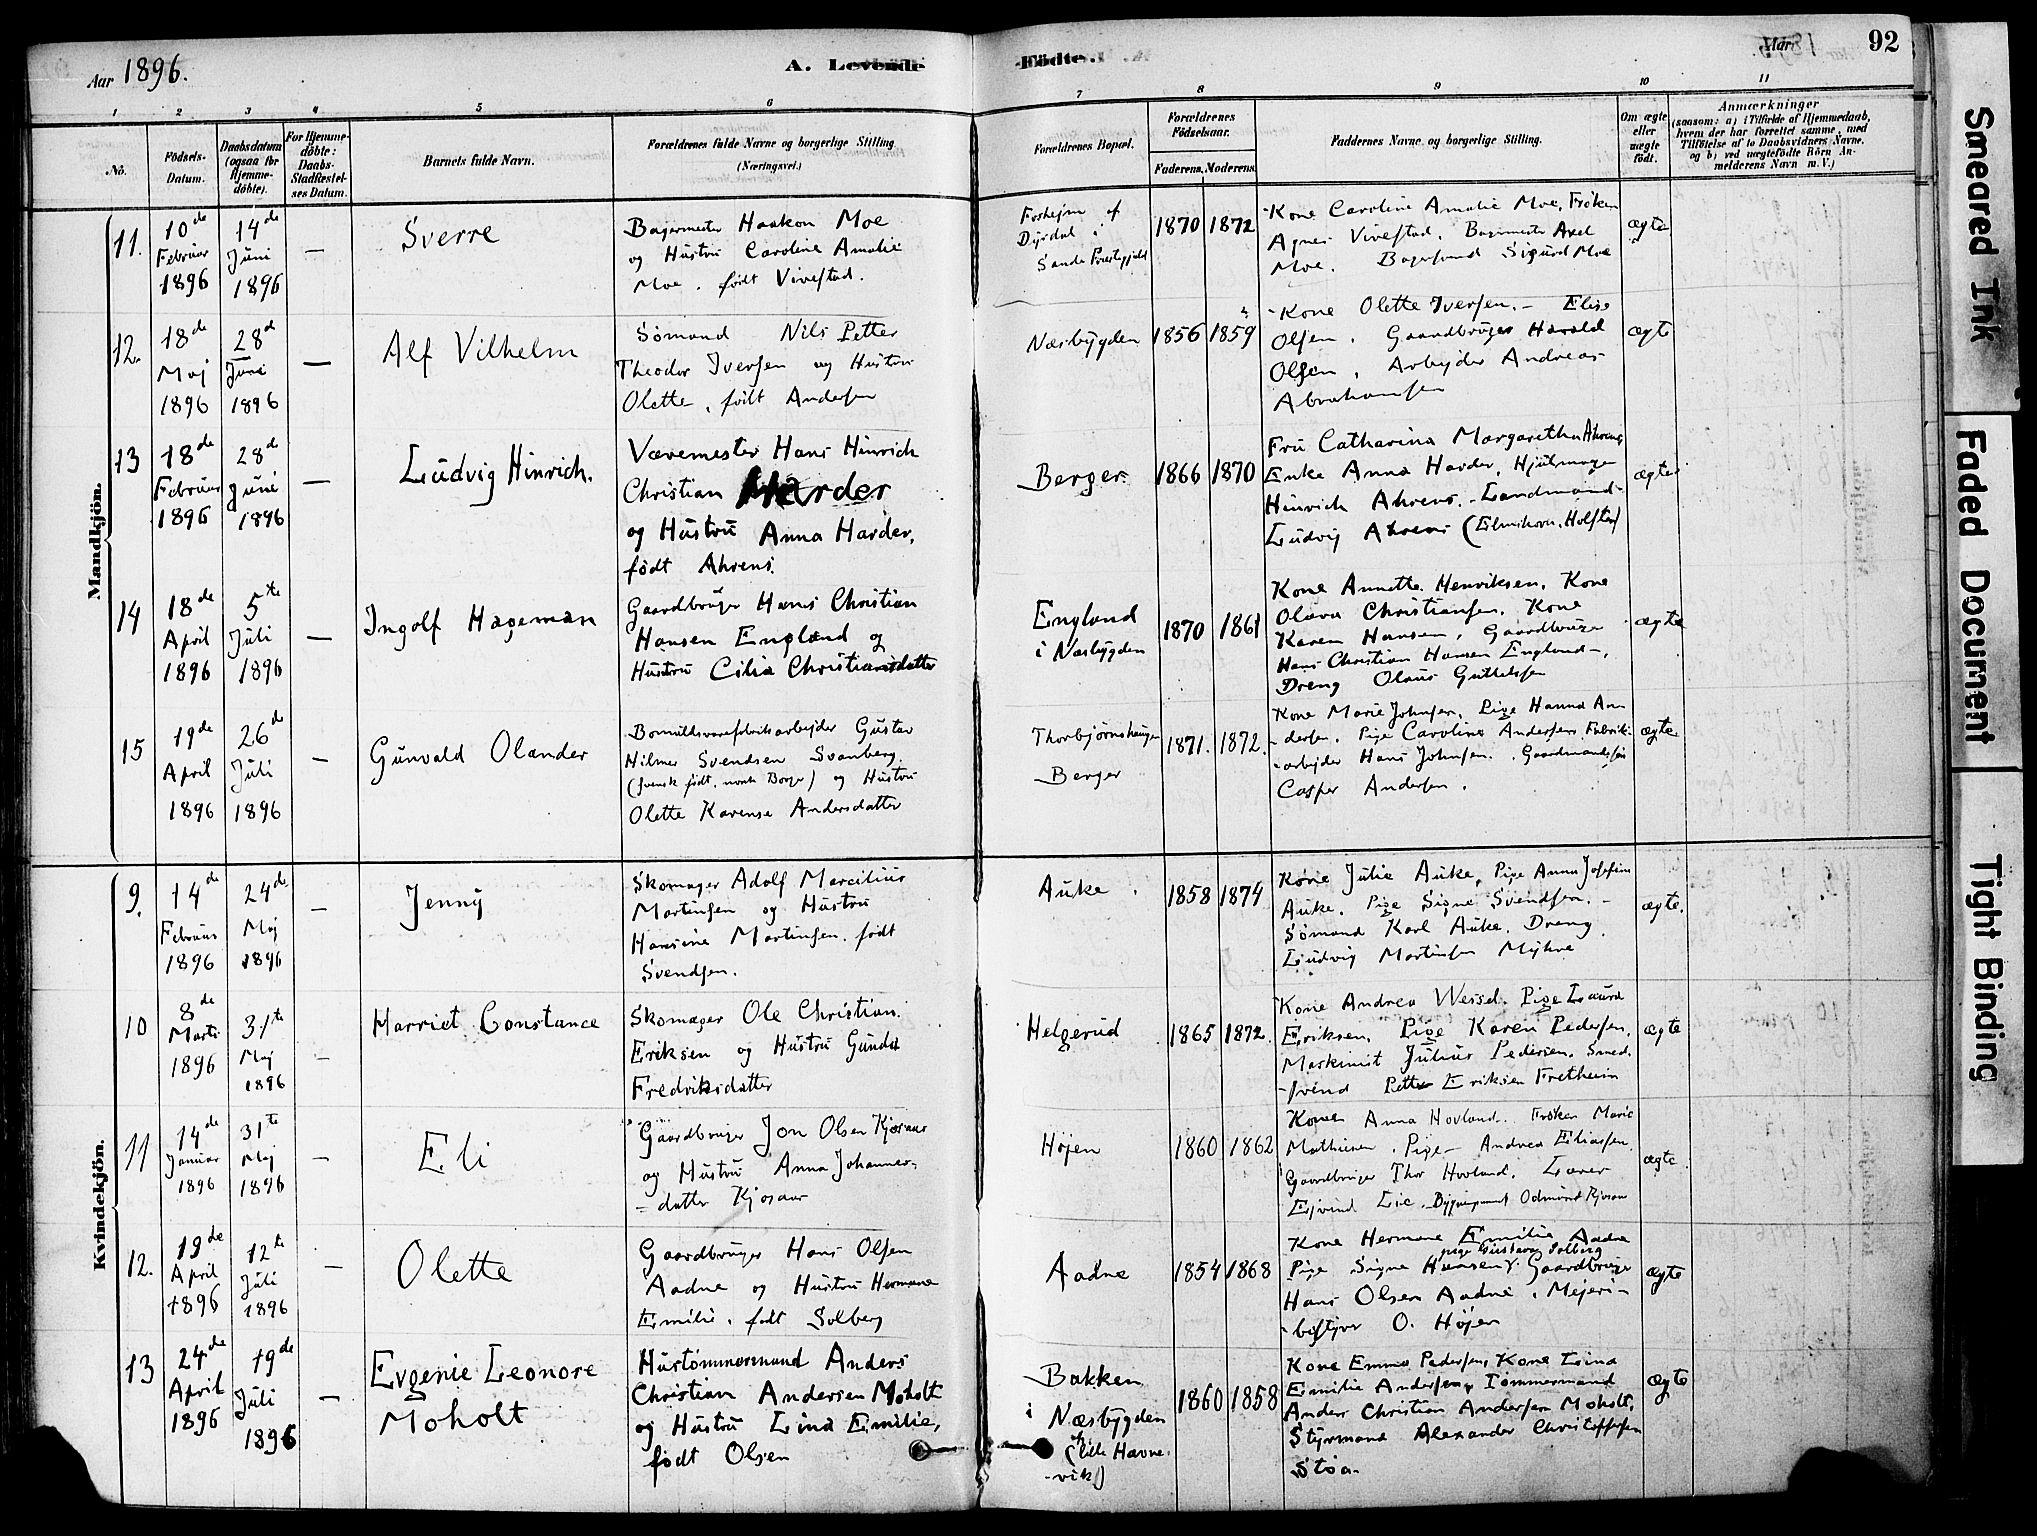 Aar 1896.
A. Levende
Födte.
Aar
92
1 2 3 4 5 6 7 8 9 10 11
No.
Födsels-Datum.
Daabsdatum (ogsaa for Hjemme-döbte).
For Hjemme-döbte: Daabs-Stadfæstel-ses Datum.
Barnets fulde Navn.
Forældrenes fulde Navne og borgerlige Stilling (Næringsvei.)
Forældrenes Bopæl.
Forældrenes Födselsaar.
Faderens. Moderens.
Faddernes Navne og borgerlige Stilling.
Om ægte eller uægte födt.
Anmærkninger
(saasom: a) i Tilfælde af Hjemmedaab,
hvem der har forrettet samme, med
Tilföielse af to Daabsvidners Navne.
og b) ved uægtefödte Börn An-
melderens Navn m. V.)
Mandkjön.
11. 10de Februar 1896
14de Juni 1896
—
Sverre
Bagermester Haakon Moe
og Hustru Caroline Amalie
Moe, født Vivestad.
Dyrdal
Sande Præstegjeld
1870 1872
Kone Caroline Amalie Moe, Frøken
Agnes Vivestad, Bagermester Axel
Moe. Bagersvend Sigurd Moe
ægte
12. 18de Maj 1896
28de Juni 1896
—
Alf Vilhelm
Sømand Nils Petter
Theodor Iversen og Hustru
Olette, født Andersen
Næsbygden
1856 1859
Kone Olette Iversen. – Elise
Olsen, Gaardbruger Harald
Olsen, Arbejder Andreas
Abrahamsen
ægte
13 18de Februar 1896
28de Juni 1896
—
Ludvig Hinrich.
Væremester Hans Hinrich
Christian Harder
og Hustru Anna Harder,
født Ahrens.
Berger
1866 1870
Fru Catharina Margaretha Ahrens
Enke Anna Harder, Hjulmager
Hinrich Ahrens. Landmand
Ludvig Ahrens (Elmshorn, Holsten)
ægte
14 18de April 1896
5te Juli 1896
—
Ingolf Hageman
Gaardbruger Hans Christian
Hansen England og
Hustru Cilia Christiansdatter
England
i Næsbygden
1870 1861
Kone Annette Henriksen, Kone
Olava Christiansen, Kone
Karen Hansen, Gaardbruger
Hans Christian Hansen England,
Dreng Olaus Guttelsen
ægte
15 19de April 1896
26de Juli 1896
—
Gunvald Olander
Bomuldsvarefabriksarbejder Gustav
Hilmer Svendsen Svanberg
(svensk født, norsk Borger) og Hustru
Olette Karense Andersdatter
Thorbjørnshaugen
Berger
1871. 1872.
Kone Marie Johnsen, Pige Hanna An-
dersen, Pige Caroline Andersen, Fabrik-
arbejder Hans Johnsen. Gaardmandssøn
Casper Andersen.
ægte
Kvindekjön.
9. 14de Februar 1896
24de Maj 1896
—
Jenny
Skomager Adolf Marcilius
Martinsen og Hustru
Hansine Martinsen, født
Svendsen.
Auke
1858 1874
Kone Julie Auke, Pige Anna Josefine
Auke. Pige Signe Svendsen.
Sømand Karl Auke. Dreng
Ludvig Martinsen Myhre
ægte.
10 8de Marts 1896
31te Maj 1896
—
Harriet Constance
Skomager Ole Christian
Eriksen og Hustru Gunda
Fredriksdatter
Helgerud
1865 1872.
Kone Andrea Wessel. Pige Laura
Eriksen. Pige Karen Pedersen.
Maskinist Julius Pedersen. Smed-
svend Petter Eriksen Fretheim
ægte
11 14de Januar 1896
31te Maj 1896
—
Eli
Gaardbruger Jon Olsen Kjøsaar
og Hustru Anna Johannes-
datter Kjøsaar
Højen
1860 1862
Konen Anna Hovland. Frøken Marie
Mathiesen, Pige Andrea Eliassen.
Gaardbruger Thor Hovland. Lærer
Ejvind Lie.
ægte
12. 19de April 1896
12te Juli 1896
—
Olette
Gaardbruger Hans Olsen
Aadne og Hustru Hermane
Emilie, født Solberg
Aadne
1854 1868
Kone Hermane Emilie Aadne
pige Gustava Solberg
Pige Signe Hansen, Gaardbruger
Hans Olsen Aadne, Mejeri-
bestyrer O. Højen
ægte
13 24de April 1896
19de Juli 1896
—
Evgenie Leonore
Moholt
Hustømmermand Anders
Christian Andersen Moholt
og Hustru Lina Emilie,
født Olsen
Bakken
i Næsbygden
(lille Havne-
vik)
1860 1858
Kone Emma Pedersen, Kone Lina
Emilie Andersen, Tømmermand
Anders Christian Andersen Moholt,
Styrmand Alexander Christoffersen
Støa.
ægte
Smeared Ink
Faded Document
Tight Binding